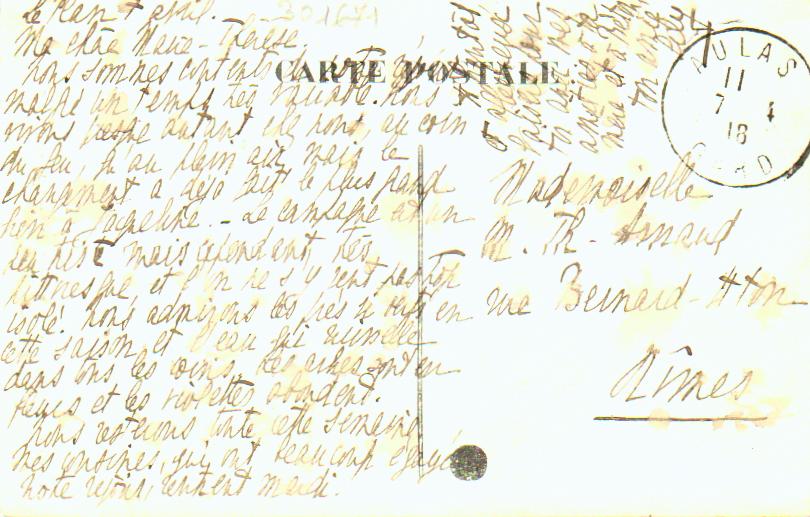 Le Plan 7 avril.
301671
Ma chère Marie-Thérèse,
CARTE POSTALE
nous sommes contents
malgré un temps très maussade. nous
vivons presque autant que nous, au coin
du feu, qu'au plein air mais le
changement a déjà fait le plus grand
bien à Jacqueline. - La campagne a un
peu triste mais cependant très
pittoresque, et l'on ne s'y sent pas trop
isolé. nous admirons les prés si verts en
cette saison, et l'eau qui ruisselle
dans tous les coins. Les arbres sont en
fleurs et les violettes abondent.
nous resterons toute cette semaine
mes cousines, qui ont beaucoup égayé
notre séjour, rentrent mardi.
affectueux
ton amie
AULAS
11
7 4
18
GARD
Mademoiselle
M. Th. Arnaud
rue Bernard-Atton
Nîmes